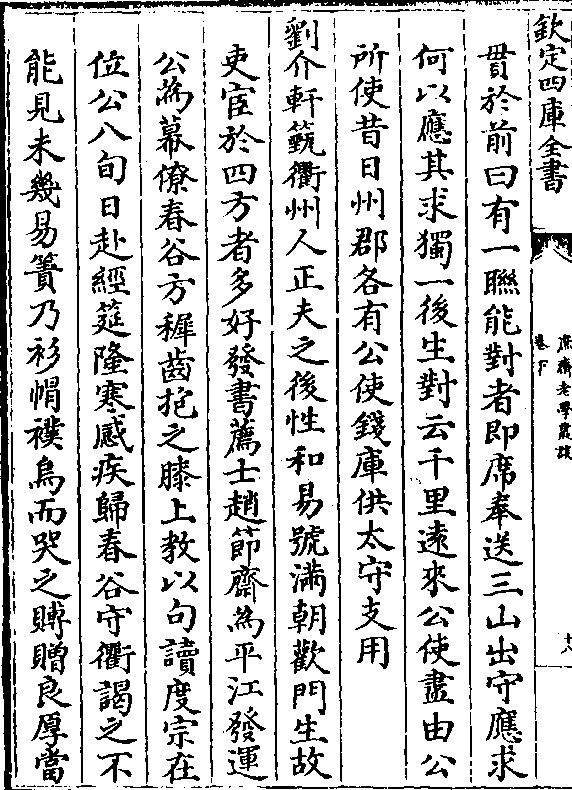 欽定四庫全書
庶齋老學叢談
卷下
十八
貫於前曰有一聯能對者即席奉送三山出守應求
何以應其求獨一後生對云千里遠來公使盡由公
所使昔日州郡各有公使錢庫供太守支用
劉介軒㽦衢州人正夫之後性和易號滿朝歡門生故
吏宦於四方者多好發書薦士趙節齋為平江發運
公為幕僚春谷方穉齒抱之膝上教以句讀度宗在
位公八旬日赴經筵隆寒感疾歸春谷守衢謁之不
能見未幾易簀乃衫帽襆烏而哭之賻贈良厚當